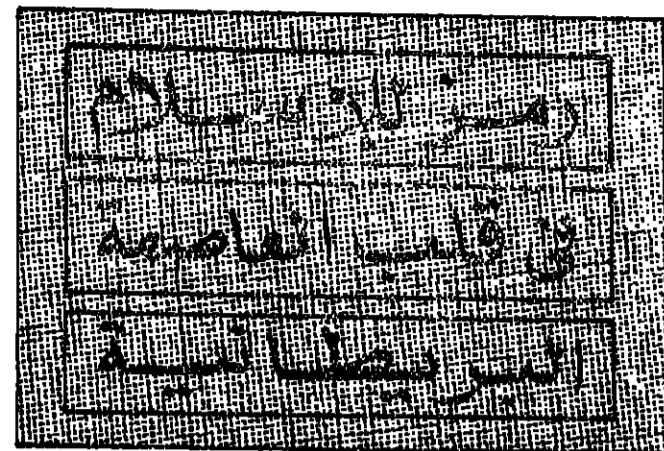 رمز بارز للاسلام
في قلب العاصمة
البريطانية